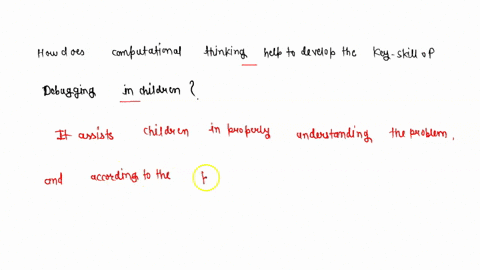 How does computational thinking help to develop the key-skill of
Debugging in children ?.
It assists children in properly understanding the problem,
and according to the